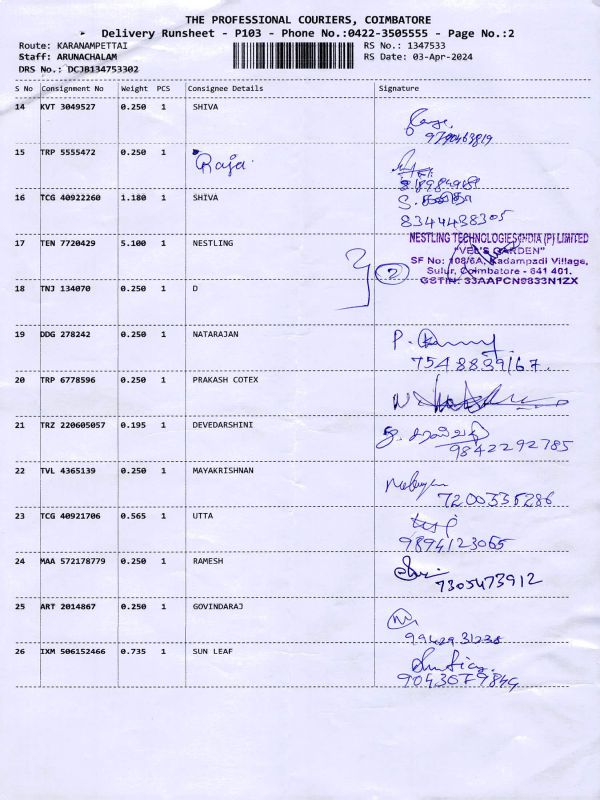 THE PROFESSIONAL COURIERS, COIMBATORE
Delivery Runsheet - P103 - Phone No.:0422-3505555 - Page No.:2
Route: KARANAMPETTAI RS No.: 1347533
Staff: ARUNACHALAM RS Date: 03-Apr-2024
DRS No.: DCJB134753302
S No Consignment No Weight PCS Consignee Details Signature
14 KVT 3049527 0.250 1 SHIVA
9790463819
15 TRP 5555472 0.250 1 Raja
16 TCG 40922260 1.180 1 SHIVA
8344438305
17 TEN 7720429 5.100 1 NESTLING
NESTLING TECHNOLOGIES INDIA (P) LIMITED
"VEL'S GARDEN"
SF No: 108/6A, Kadampadi Village,
Sulur, Coimbatore - 641 401.
GSTIN: 33AAFCN9833N1ZX
2
18 TNJ 134070 0.250 1 D
19 DDG 278242 0.250 1 NATARAJAN
7548839167.
20 TRP 6778596 0.250 1 PRAKASH COTEX
21 TRZ 220605057 0.195 1 DEVEDARSHINI
9842292785
22 TVL 4365139 0.250 1 MAYAKRISHNAN
7200335286
23 TCG 40921706 0.565 1 UTTA
9894123065
24 MAA 572178779 0.250 1 RAMESH
7305473912
25 ART 2014867 0.250 1 GOVINDARAJ
9942931238
26 IXM 506152466 0.735 1 SUN LEAF
9043079849